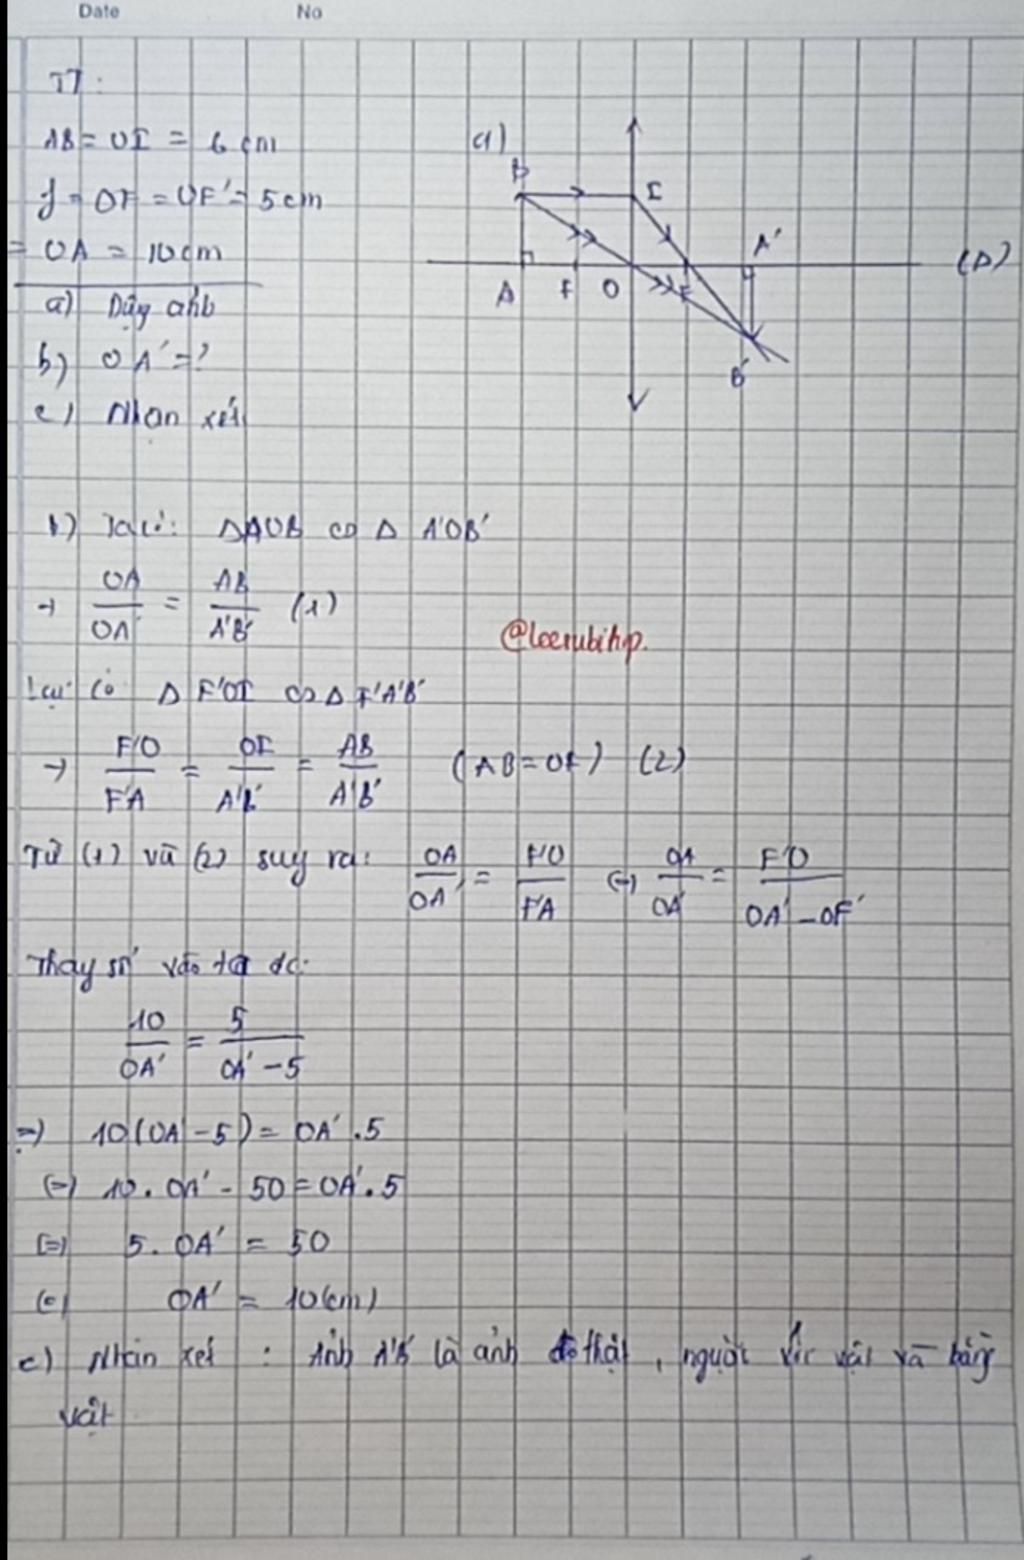 Date No
TT:
AB = OI = 6 cm
f = OF = OF' = 5 cm
= OA = 10 cm
a) Dựg ảnh
b) OA' = ?
c) Nhận xét
a)
B I A' (Δ)
A F O F'
B'
b) Ta có: ΔAOB ∽ Δ A'OB'
→ OA/OA' = AB/A'B' (1)
@leerubihp.
Lại có Δ F'OI ∽ Δ F'A'B'
→ F'O/F'A' = OI/A'B' = AB/A'B' (AB = OI) (2)
Từ (1) và (2) suy ra: OA/OA' = F'O/F'A' (=) OA/OA' = F'O/OA' - OF'
Thay số vào ta dc:
10/OA' = 5/OA' - 5
=) 10(OA' - 5) = OA' . 5
(=) 10 . OA' - 50 = OA' . 5
(=) 5. OA' = 50
(=) OA' = 10 (cm)
c) Nhận xét : Ảnh A'B' là ảnh thật, ngược vật và bằng
vật